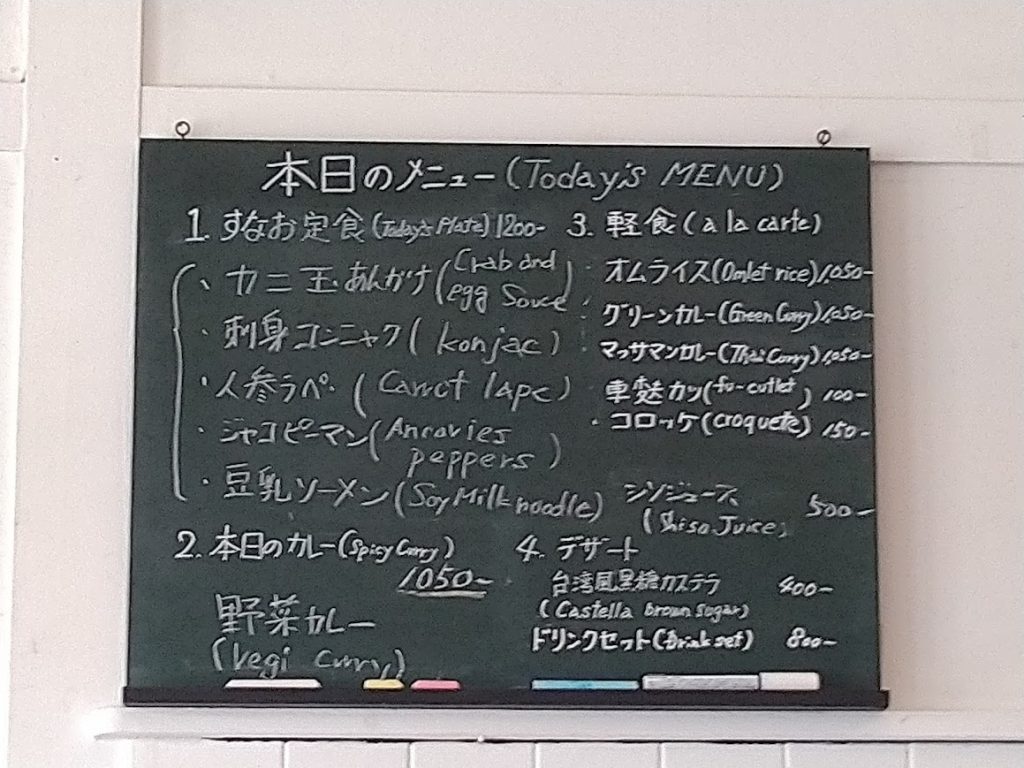 本日のメニュー(Today's MENU)
1. すなお定食(Today's Plate)1200-
・カニ玉あんかけ(Crab and
egg Souce)
・刺身コンニャク(konjac)
・人参ラペ(Carrot lape)
・ジャコピーマン(Ancovies
peppers)
・豆乳ソーメン(Soy Milk noodle)
2. 本日のカレー(Spicy Curry)
1050-
野菜カレー
(Vegi Curry)
3. 軽食(a la carte)
・オムライス(Omlet rice)1,050-
・グリーンカレー(Green Curry)1,050-
・マッサマンカレー(Thai Curry)1,050-
車麩カツ(fu-cutlet) 100-
・コロッケ(croquete) 150-
シソジュース 500-
(Shiso Juice)
4. デザート
台湾風黒糖カステラ 400-
(Castella brown sugar)
ドリンクセット(Drink set) 800-